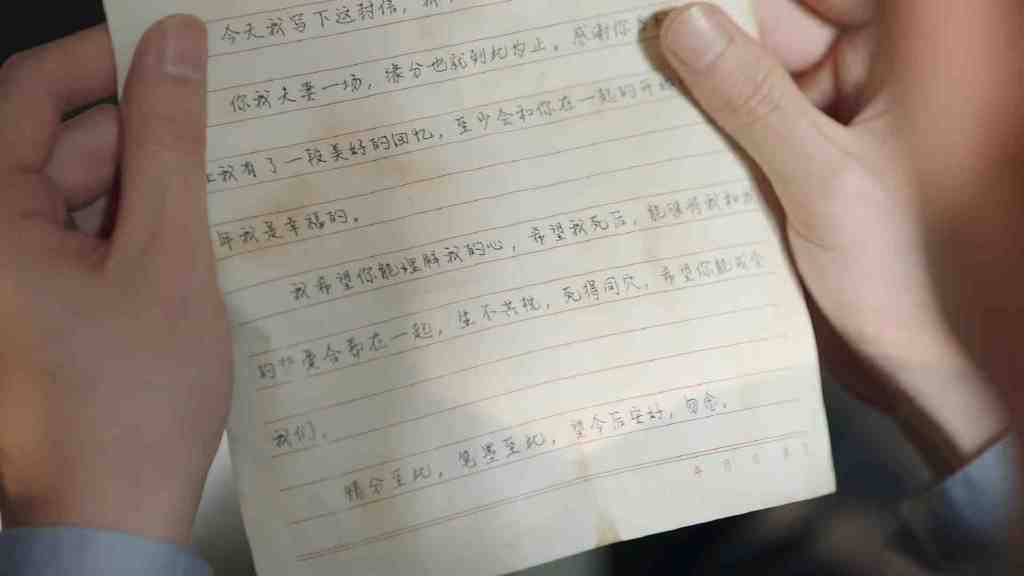 今天我写下这封信，
你我夫妻一场，缘分也就到此为止。感谢你
让我有了一段美好的回忆，至少会和你在一起的
年我是幸福的。
我希望你能理解我的心，希望我死后，能够将我和
的 爱合葬在一起，生不共枕，死得同穴，希望你能成全
我们。
情分至此，笔墨至此，望今后安好，勿念。